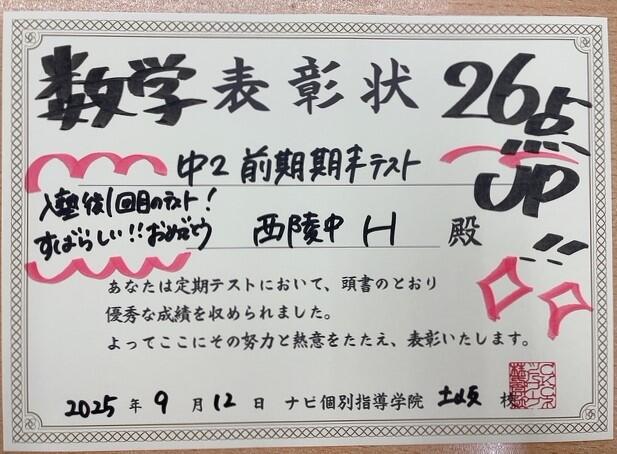 数学 表彰状 26点
UP!!
中2 前期期末テスト
入塾後1回目のテスト!
すばらしい!!おめでとう
西陵中 H 殿
あなたは定期テストにおいて、頭書のとおり
優秀な成績を収められました。
よってここにその努力と熱意をたたえ、表彰いたします。
2025年9月12日 ナビ個別指導学院 校